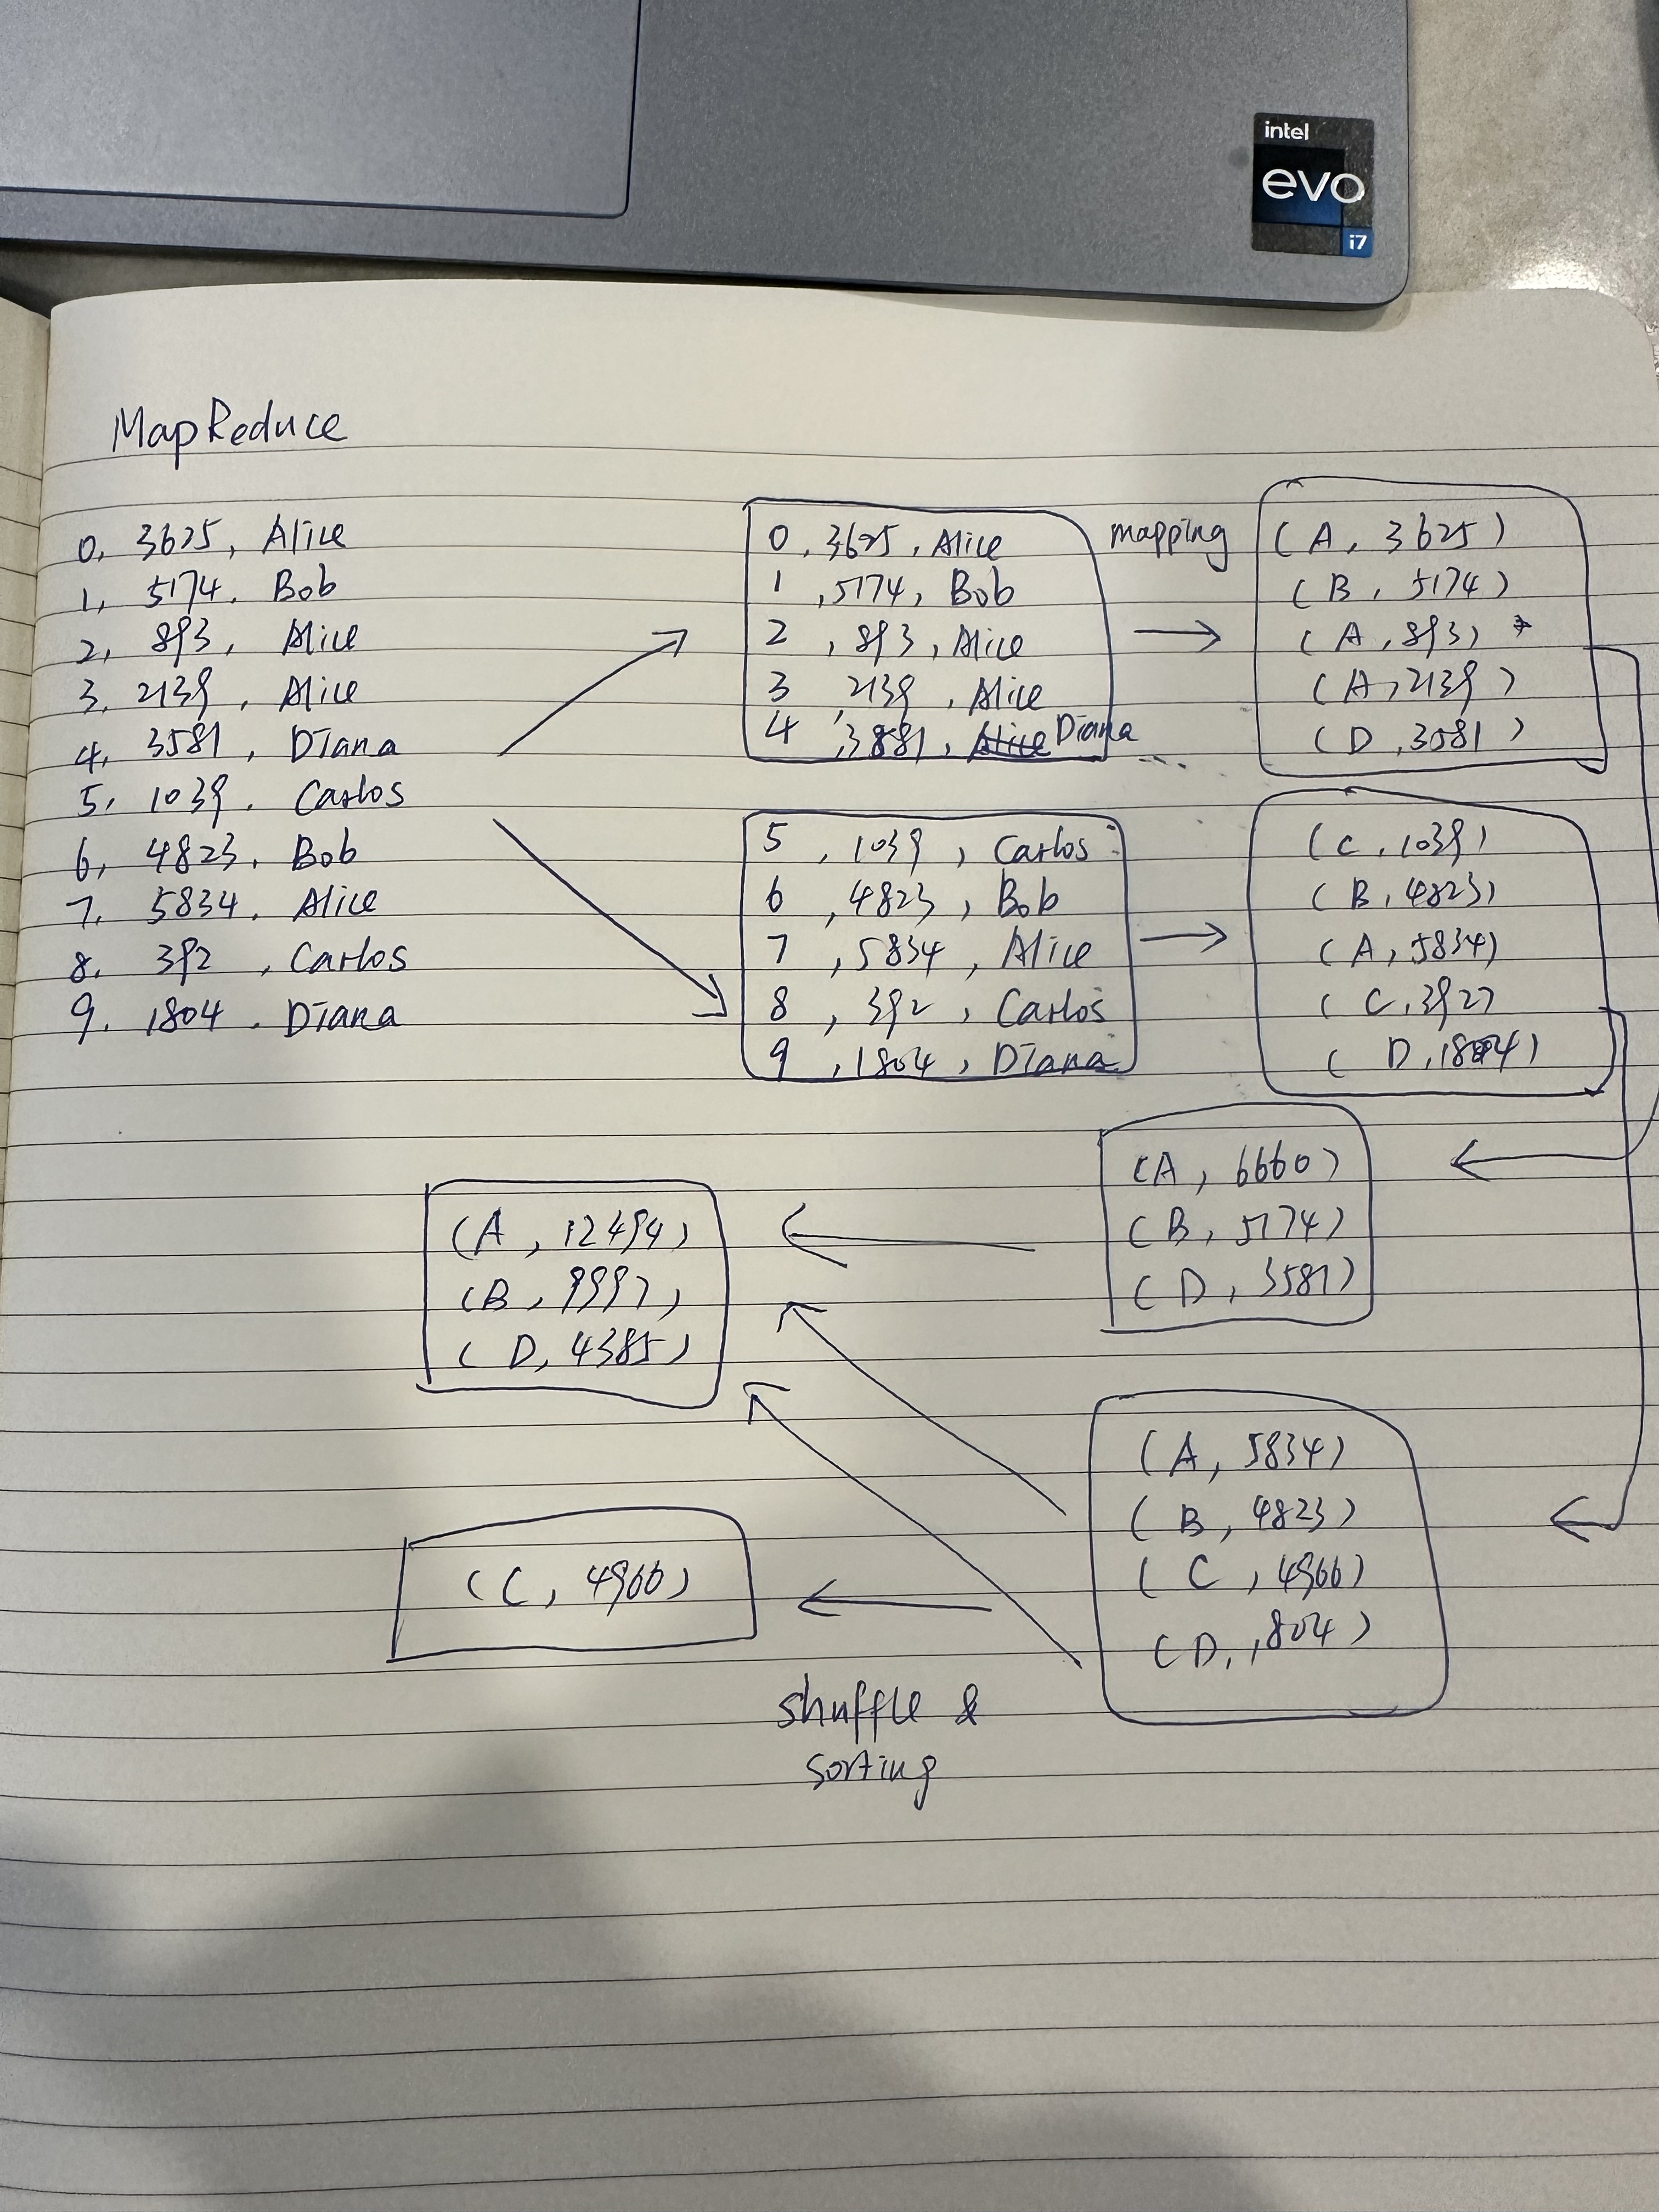 intel
evo
i7
MapReduce
0, 3625, Alice
1, 5174, Bob
2, 893, Alice
3, 2139, Alice
4, 3581, Diana
5, 1039, Carlos
6, 4823, Bob
7, 5834, Alice
8, 392, Carlos
9, 1804, Diana
0, 3625, Alice
1, 5174, Bob
2, 893, Alice
3, 2139, Alice
4, 3581, Alice Diana
5, 1039, Carlos
6, 4823, Bob
7, 5834, Alice
8, 392, Carlos
9, 1804, Diana
mapping
(A, 3625)
(B, 5174)
(A, 893)
(A, 2139)
(D, 3581)
(C, 1039)
(B, 4823)
(A, 5834)
(C, 3927
(D, 1804)
(A, 6660)
(B, 5174)
(D, 3581)
(A, 5834)
(B, 4823)
(C, 4966)
(D, 1804)
(A, 12494)
(B, 9997)
(D, 4385)
(C, 4966)
shuffle &
sorting